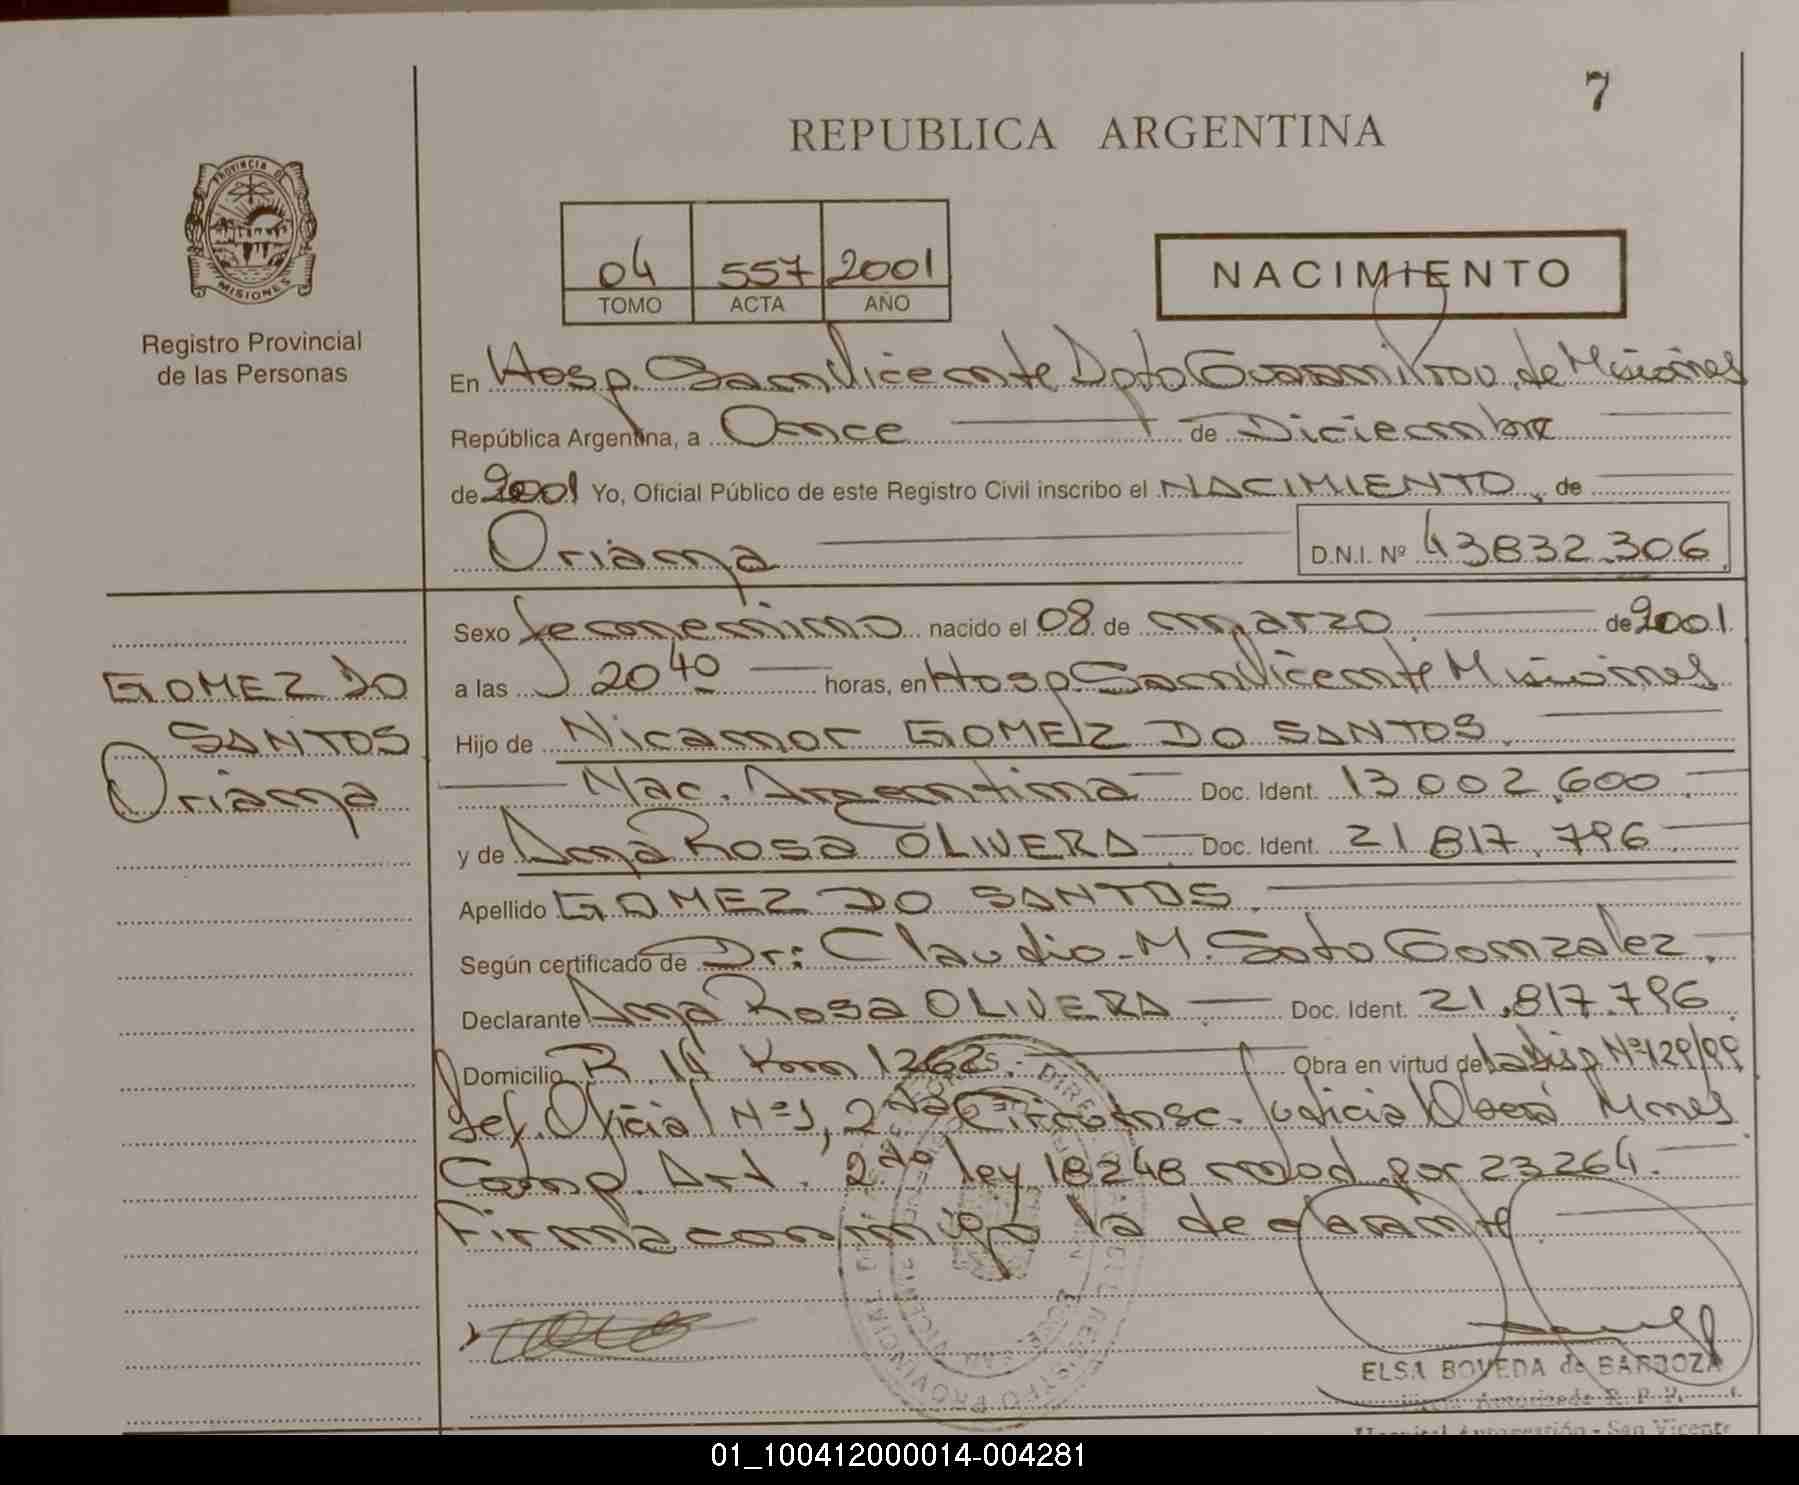 7
REPUBLICA ARGENTINA
PROVINCIA DE
MISIONES
Registro Provincial
de las Personas
04 557 2001
TOMO ACTA AÑO
NACIMIENTO
En Hosp. San Vicente Dpto Guarani Prov. de Misiones
República Argentina, a Once de Diciembre
de 2001 Yo, Oficial Público de este Registro Civil inscribo el NACIMIENTO, de
Oriana D.N.I. Nº 43832.306
Sexo femenino nacido el 08 de marzo de 2001.
a las 20 40 horas, en Hosp San Vicente Misiones
GOMEZ DO
SANTOS
Oriana
Hijo de Nicanor GOMEZ DO SANTOS.
Nac. Argentina Doc. Ident. 13.002.600.
y de Ana Rosa OLIVERA Doc. Ident. 21.817.796
Apellido GOMEZ DO SANTOS.
Según certificado de Dr: Claudio M. Soto Gonzalez.
Declarante Ana Rosa OLIVERA Doc. Ident. 21.817.796
Domicilio R. 14 Km 1262. Obra en virtud de la Disp Nº 129/99
Def. Oficial Nº 1, 2da Circunsc. Judicial Oberá Mnes
Comp. Art. 2do ley 18248 mod. por 23264.
Firma conmigo la declarante.
ELSA BOVEDA de BARBOZA
Autorizada R. P. P.
Hospital Autogestión - San Vicente
01_100412000014-004281